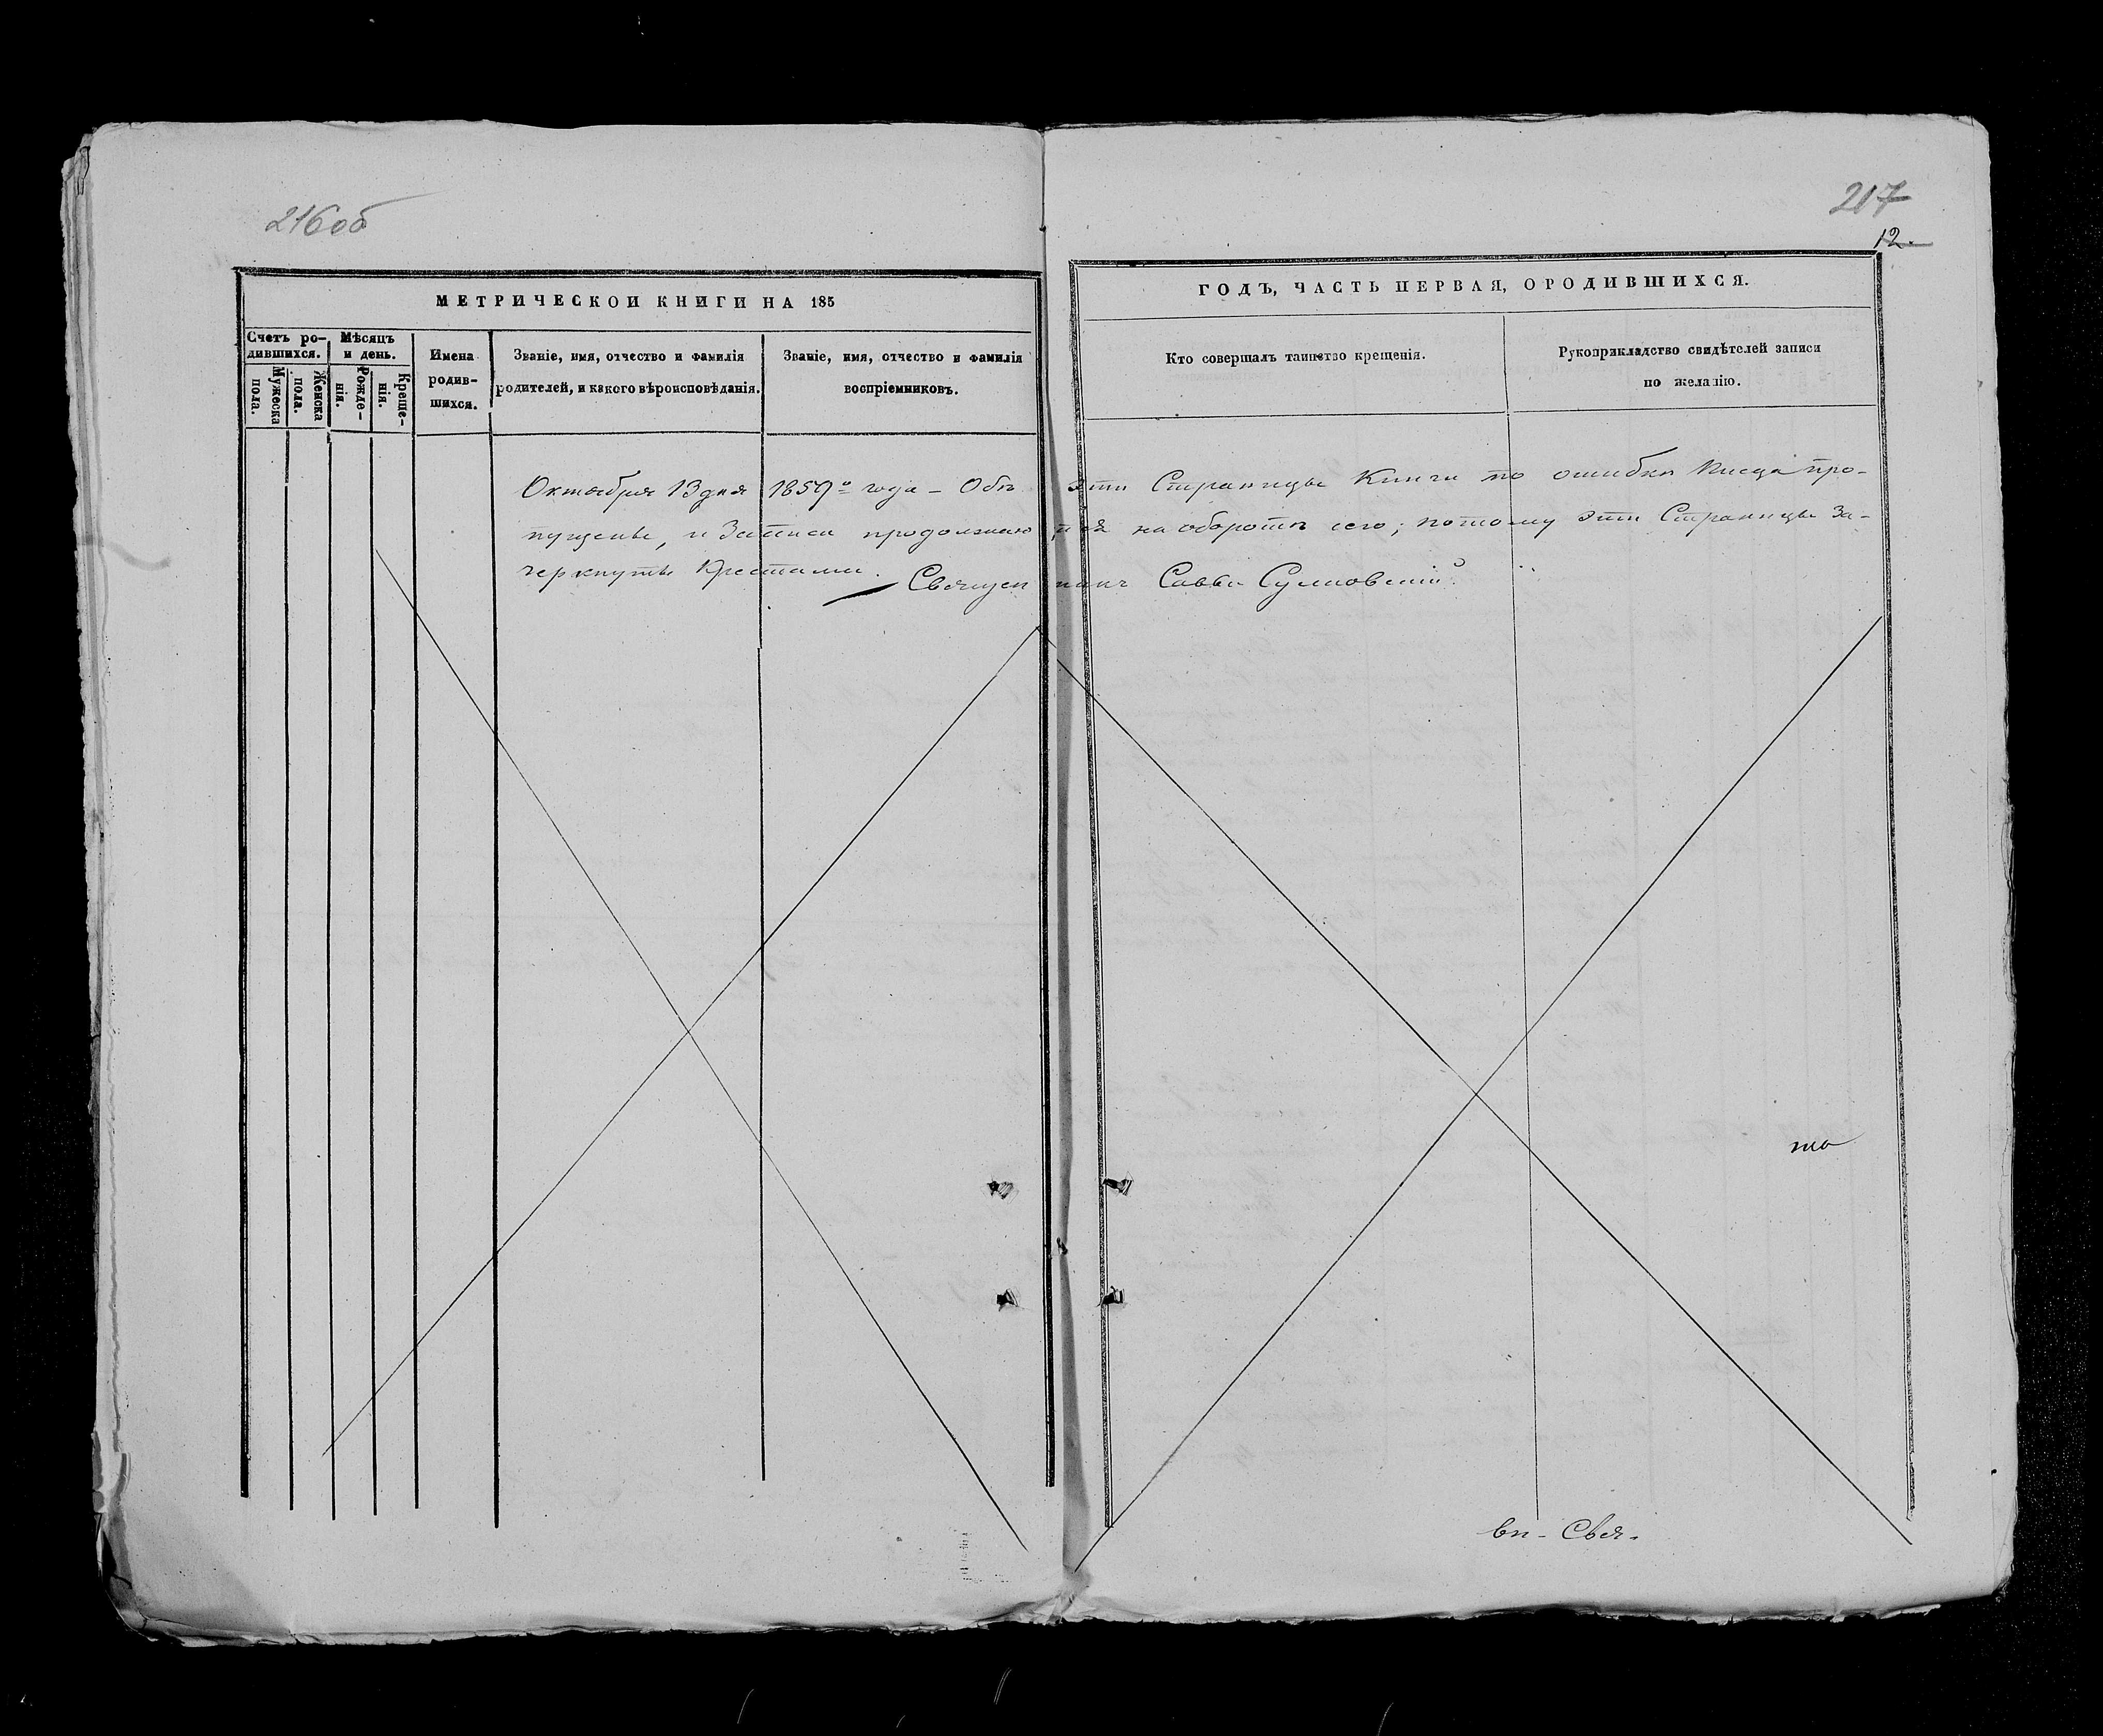 216об
217
12.
МЕТРИЧЕСКОЙ КНИГИ НА 185
ГОДЪ, ЧАСТЬ ПЕРВАЯ, О РОДИВШИХСЯ.
Счетъ ро-
дившихся.
Мужеска
пола.
Женска
пола.
Мѣсяцъ
и день.
Рожде-
нія.
Креще-
нія.
Имена
родив-
шихся.
Званіе, имя, отчество и фамилія
родителей, и какого вѣроисповѣданія.
Званіе, имя, отчество и фамилія
воспріемниковъ.
Кто совершалъ таинство крещенія.
Рукоприкладство свидѣтелей записи
по желанію.
Октября 13 дня 1859го года – Обѣ эти Страницы Книги по ошибкѣ писца про-
пущены, и Записи продолжаются на оборотѣ сего; потому эти Страницы За-
черкнуты Крестами. Священникъ Савва
вп- Свя-